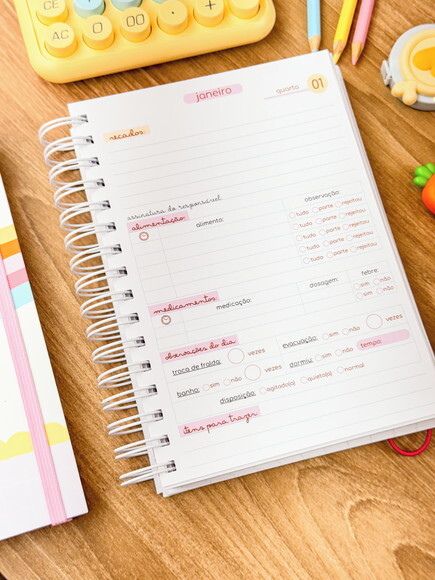 CE
AC
0
00
.
+
janeiro
quarta 01
recados
assinatura do responsável
alimentação
alimento:
observação:
tudo parte rejeitou
tudo parte rejeitou
tudo parte rejeitou
tudo parte rejeitou
tudo parte rejeitou
medicamentos
medicação:
dosagem:
febre:
sim não
sim não
observações do dia
troca de fralda: vezes
evacuação: sim não vezes
banho: sim não vezes
dormiu: sim não tempo:
disposição: agitado(a) quieto(a) normal
itens para trazer